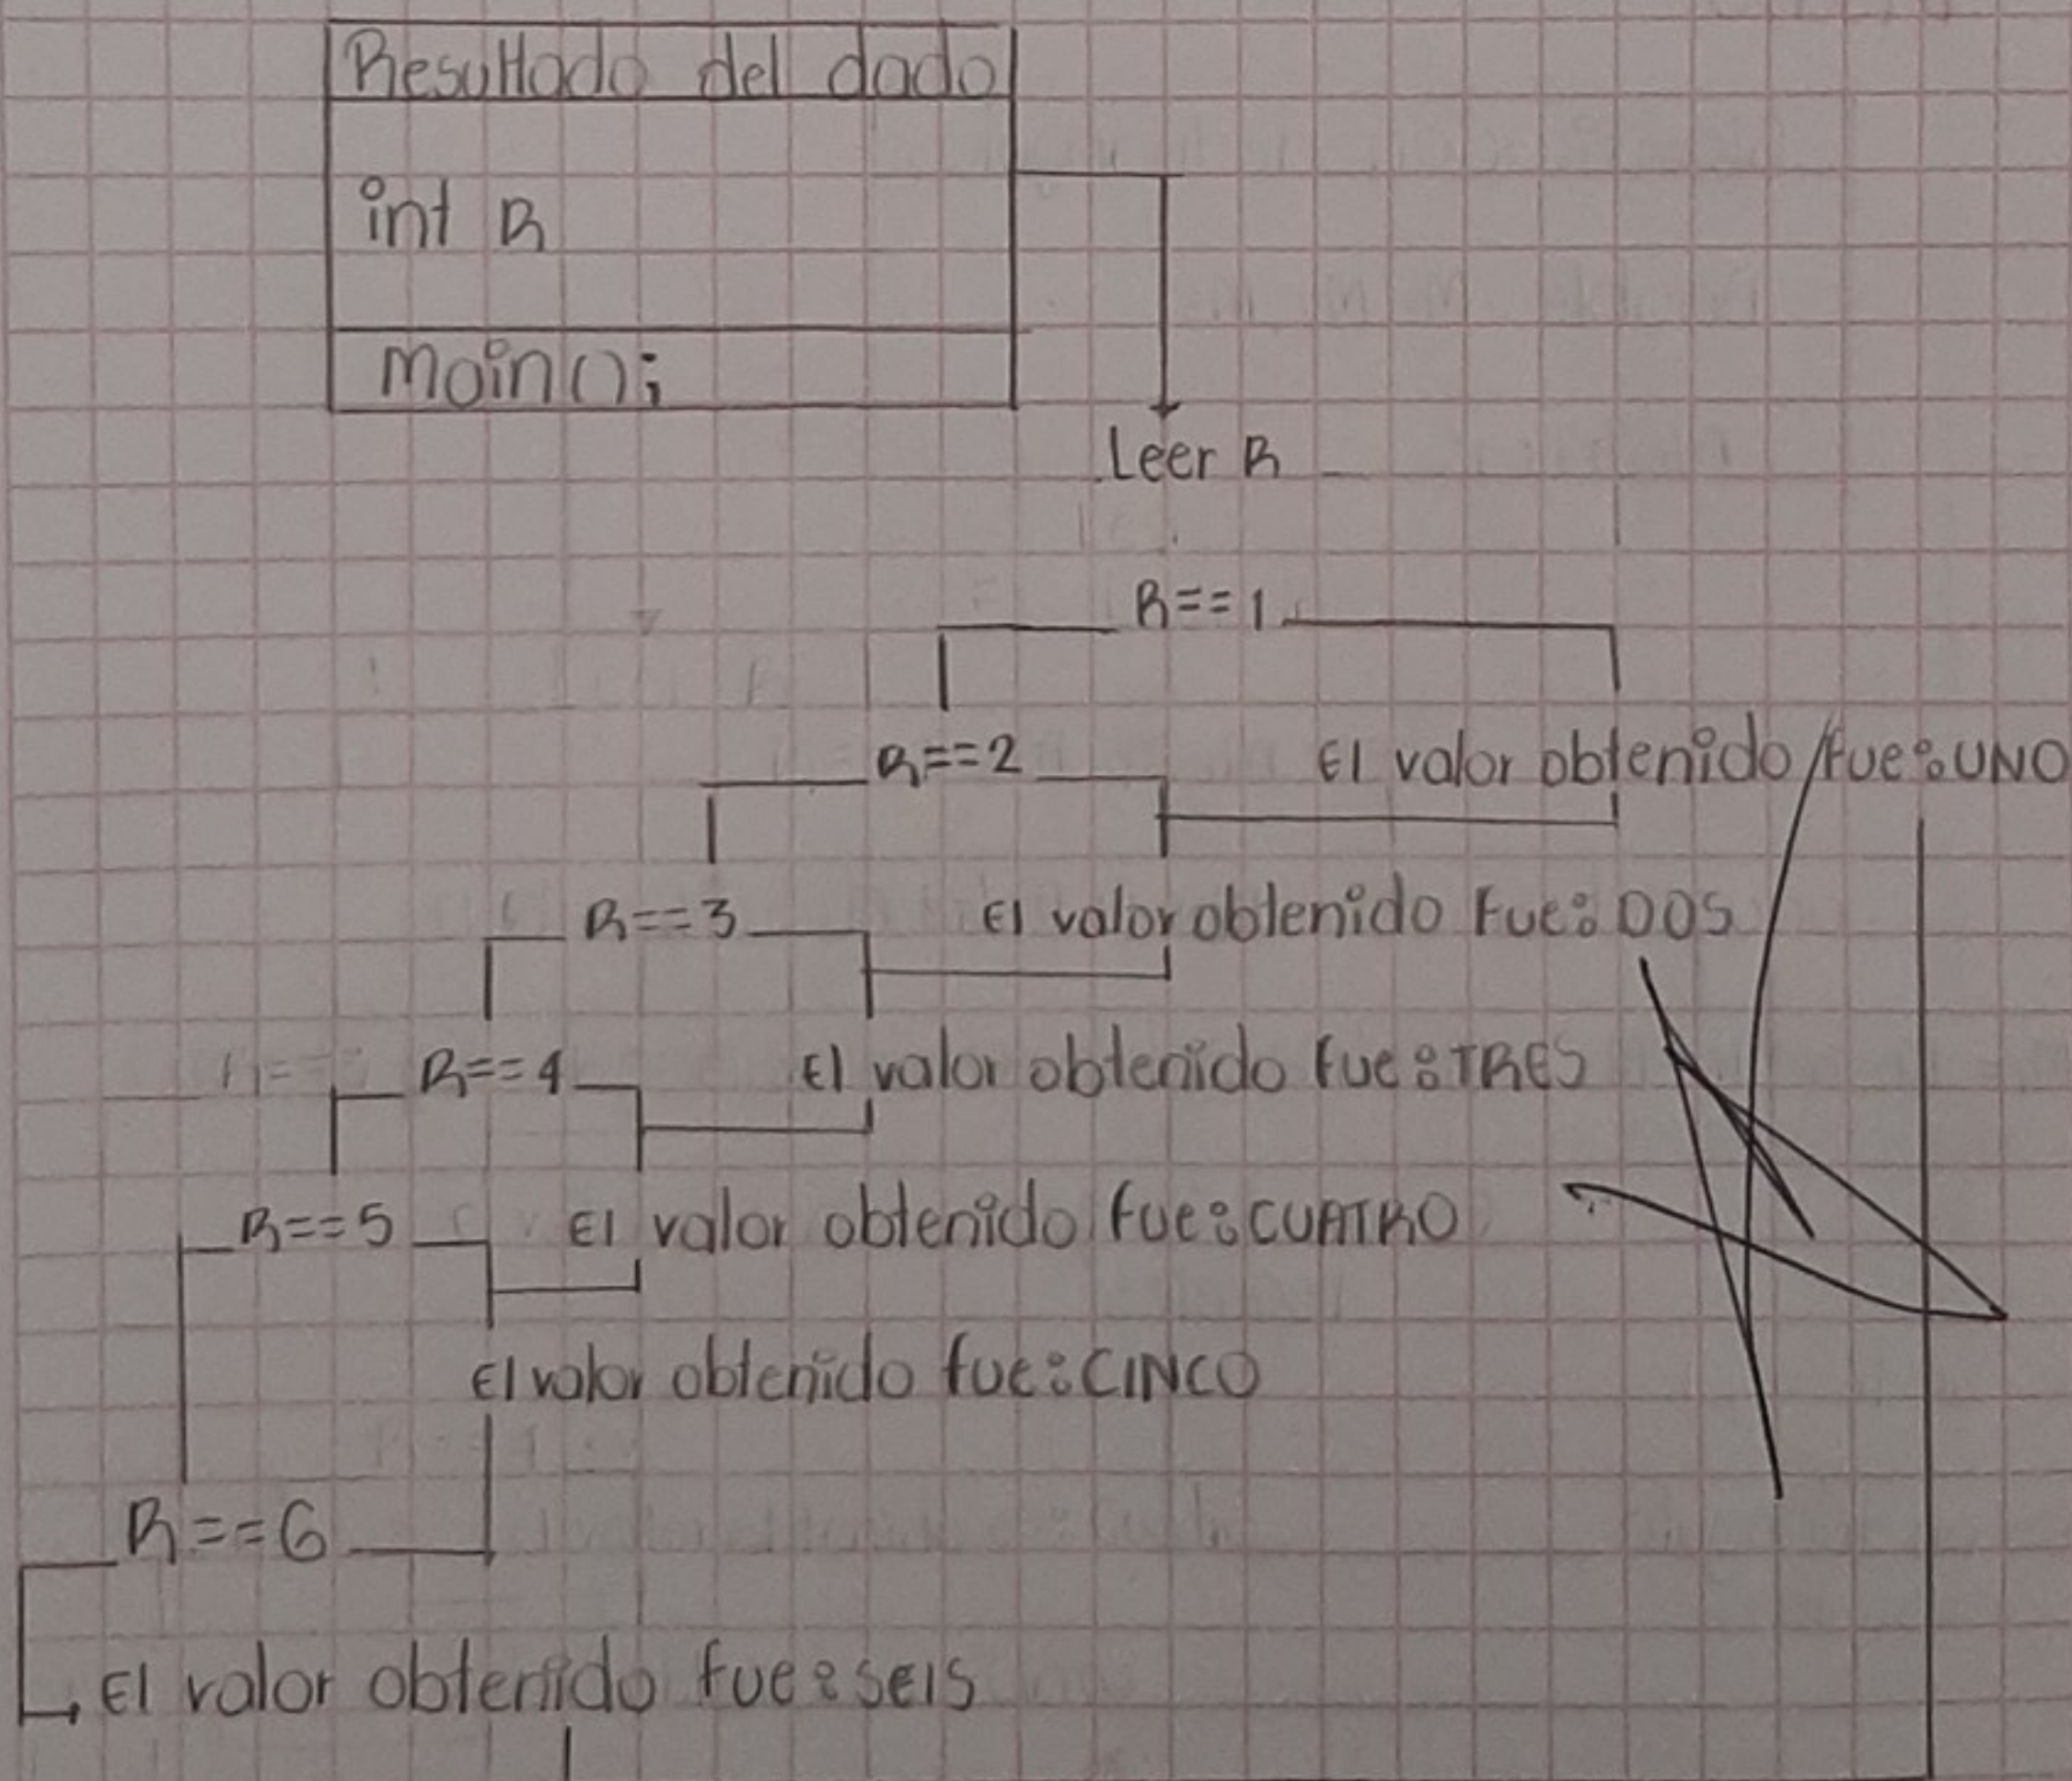 Resultado del dado
int R
main();
Leer R
R==1
R==2
El valor obtenido fue: UNO
R==3
El valor obtenido fue: DOS
R==4
El valor obtenido fue: TRES
R==5
El valor obtenido fue: CUATRO
El valor obtenido fue: CINCO
R==6
El valor obtenido fue: SEIS